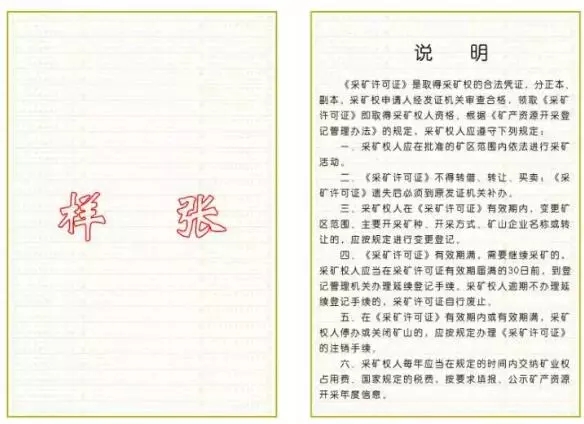 样 张
说 明
《采矿许可证》是取得采矿权的合法凭证，分正本、
副本，采矿权申请人经发证机关审查合格，领取《采矿
许可证》即取得采矿权人资格，根据《矿产资源开采登
记管理办法》的规定，采矿权人应遵守下列规定：
一、采矿权人应在批准的矿区范围内依法进行采矿
活动。
二、《采矿许可证》不得转借、转让、买卖；《采
矿许可证》遗失后必须到原发证机关补办。
三、采矿权人在《采矿许可证》有效期内，变更矿
区范围、主要开采矿种、开采方式、矿山企业名称或转
让的，应按规定进行变更登记。
四、《采矿许可证》有效期满，需要继续采矿的，
采矿权人应当在采矿许可证有效期届满的30日前，到登
记管理机关办理延续登记手续，采矿权人逾期不办理延
续登记手续的，采矿许可证自行废止。
五、在《采矿许可证》有效期内或有效期满，采矿
权人停办或关闭矿山的，应按规定办理《采矿许可证》
的注销手续。
六、采矿权人每年应当在规定的时间内交纳矿业权
占用费、国家规定的税费，按要求填报、公示矿产资源
开采年度信息。